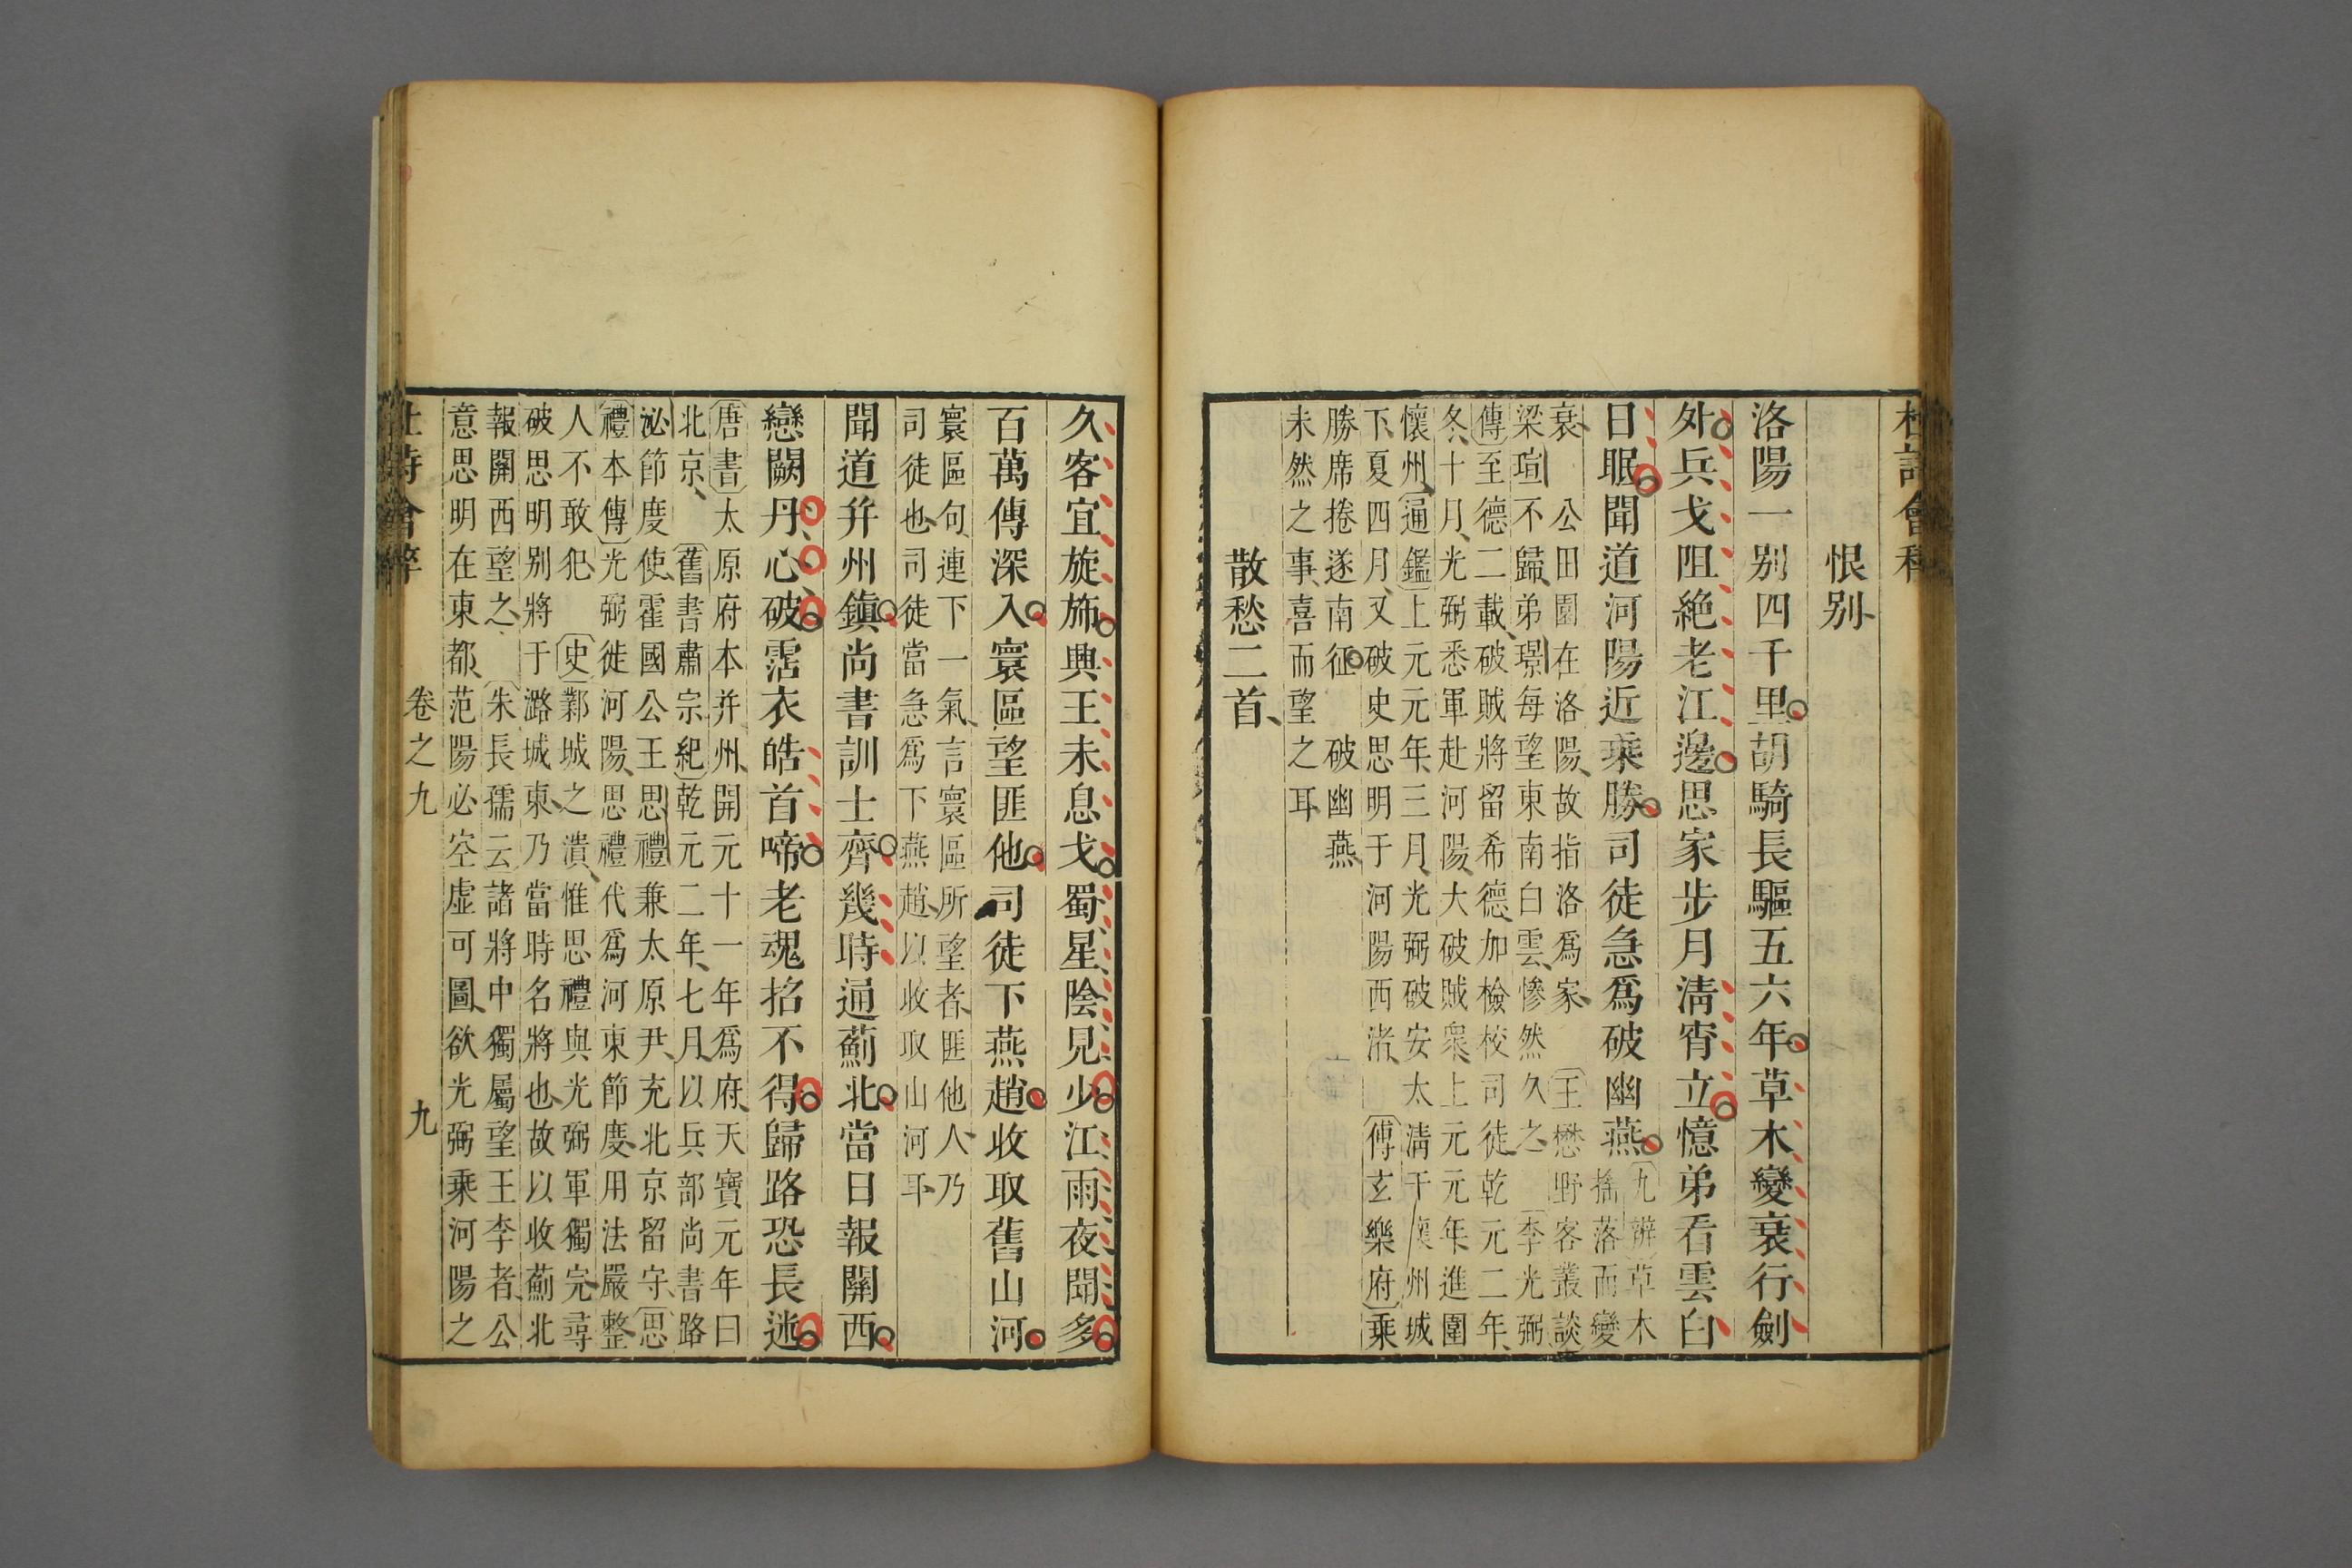 杜詩會稡
恨别
洛陽一别四千里胡騎長驅五六年草木變衰行劍
外兵戈阻絶老江邊思家步月清宵立憶弟看雲白
日眠聞道河陽近乘勝司徒急爲破幽燕
九辨草木
搖落而變
衰　公田園在洛陽故指洛爲家　王懋野客叢談
梁瑄不歸弟璟每望東南白雲慘然久之　李光弼
傳至德二載破賊將留希德加檢校司徒乾元二年
冬十月光弼悉軍赴河陽大破賊衆上元元年進圍
懷州通鑑上元元年三月光弼破安太清于懷州城
下夏四月又破史思明于河陽西渚　傅玄樂府乘
勝席捲遂南征　破幽燕
未然之事喜而望之耳
散愁二首
久客宜旋旆興王未息戈蜀星陰見少江雨夜聞多
百萬傳深入寰區望匪他司徒下燕趙收取舊山河
寰區句連下一氣言寰區所望者匪他人乃
司徒也司徒當急爲下燕趙以收取山河耳
聞道并州鎮尚書訓士齊幾時通薊北當日報關西
戀闕丹心破霑衣皓首啼老魂招不得歸路恐長迷
唐書太原府本并州開元十一年爲府天寶元年曰
北京　舊書肅宗紀乾元二年七月以兵部尚書路
泌節度使霍國公王思禮兼太原尹充北京留守思
禮本傳光弼徙河陽思禮代爲河東節度用法嚴整
人不敢犯　史鄴城之潰惟思禮與光弼軍獨完尋
破思明别將于潞城東乃當時名將也故以收薊北
報關西望之　朱長孺云諸將中獨屬望王李者公
意思明在東都范陽必空虛可圖欲光弼乘河陽之
杜詩會稡　卷之九　九